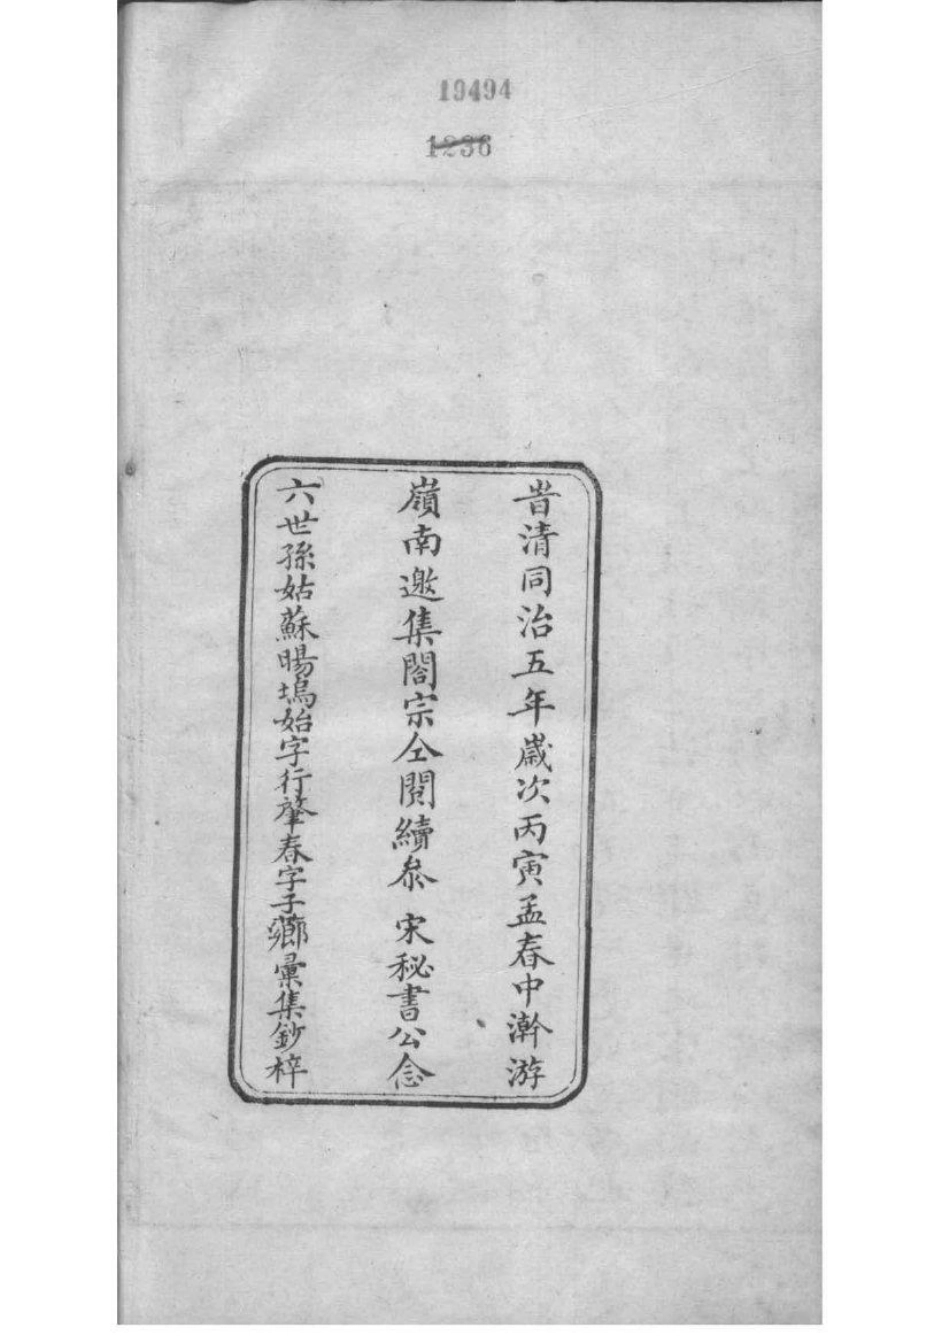 19494
1236
旹清同治五年歲次丙寅孟春中澣游
嶺南邀集閤宗仝閱續叅 宋秘書公念
六世孫姑蘇暘塢始字行肇春字子薌彙集鈔梓